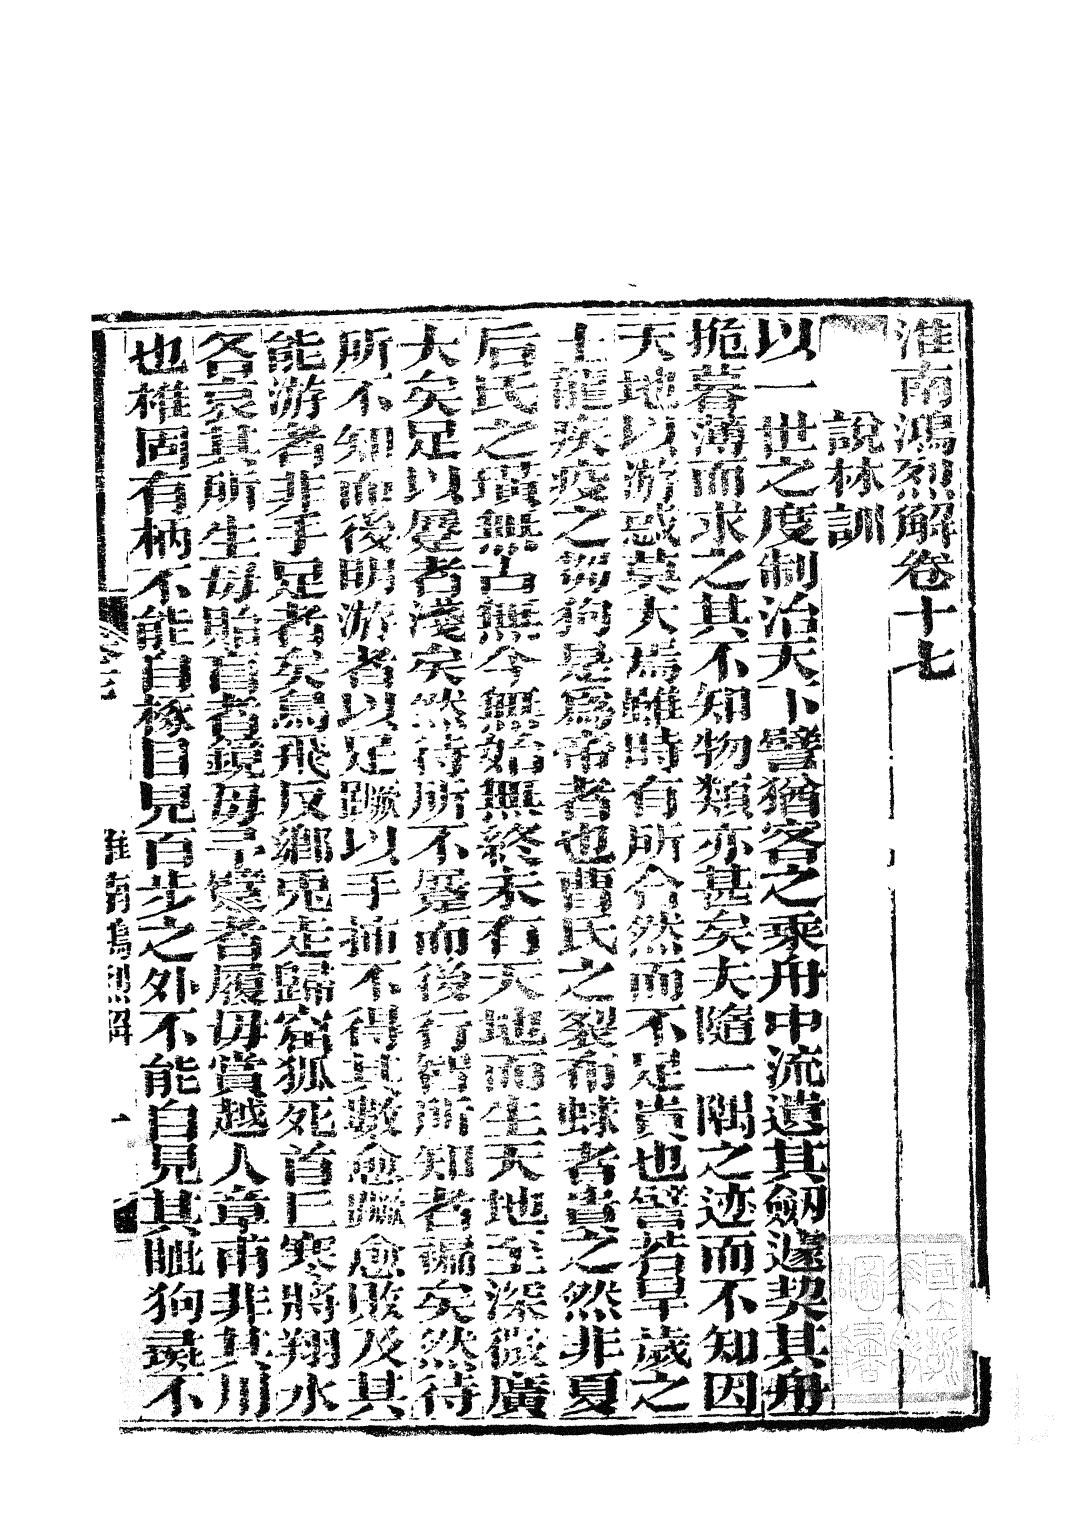 淮南鴻烈解卷十七
說林訓
以一世之度制治天下譬猶客之乘舟中流遺其劒遽契其舟
桅暮薄而求之其不知物類亦甚矣夫隨一隅之迹而不知因
天地以游惑莫大焉雖時有所合然而不足貴也譬若旱歲之
土龍疾疫之芻狗是爲帝者也曹氏之裂布蛷者貴之然非夏
后氏之璜無古無今無始無終未有天地而生天地至深微廣
大矣足以蹍者淺矣然待所不蹍而後行智所知者褊矣然待
所不知而後明游者以足蹶以手抪不得其數愈蹶愈敗及其
能游者非手足者矣鳥飛反鄉兎走歸窟狐死首丘寒將翔水
各哀其所生毋貽盲者鏡毋予躄者履毋賞越人章甫非其用
也椎固有柄不能自椓目見百步之外不能自見其眦狗彘不
淮南鴻烈解
一